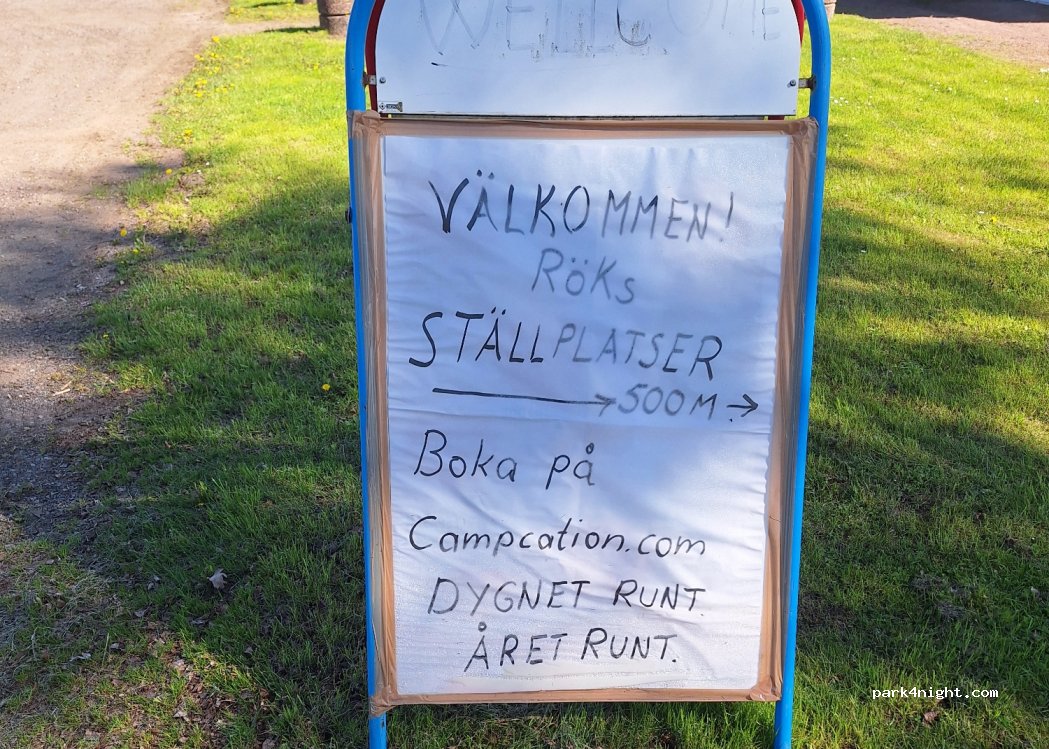 WELCOME
VÄLKOMMEN!
RÖKS
STÄLLPLATSER
→ 500 M. →
Boka på
Campcation.com
DYGNET RUNT.
ÅRET RUNT.
park4night.com